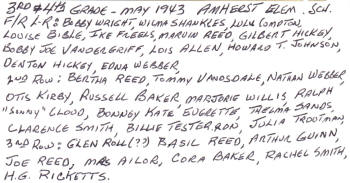 3RD & 4TH GRADE - MAY 1943 AMHERST ELEM. SCH.
F/R L-R: BOBBY WRIGHT, WILMA SHANKLES, LULA COMPTON,
LOUISE BIBLE, IKE FLEELS, MARVIN REED, GILBERT HICKEY,
BOBBY JOE VANDERGRIFF, LOIS ALLEN, HOWARD T. JOHNSON,
DENTON HICKEY, EDNA WEBBER
2ND ROW: BERTHA REED, TOMMY VANOSDALE, NATHAN WEBBER,
OTIS KIRBY, RUSSELL BAKER, MARJORIE WILLIS, RALPH
"SONNY" CLOUD, BONNEY KATE EVERETTE, THELMA SANDS,
CLARENCE SMITH, BILLIE TESTERRON, JULIA TROUTMAN,
3RD ROW: GLEN ROLL(??) BASIL REED, ARTHUR GUINN,
JOE REED, MRS AILOR, CORA BAKER, RACHEL SMITH,
H.G. RICKETTS.